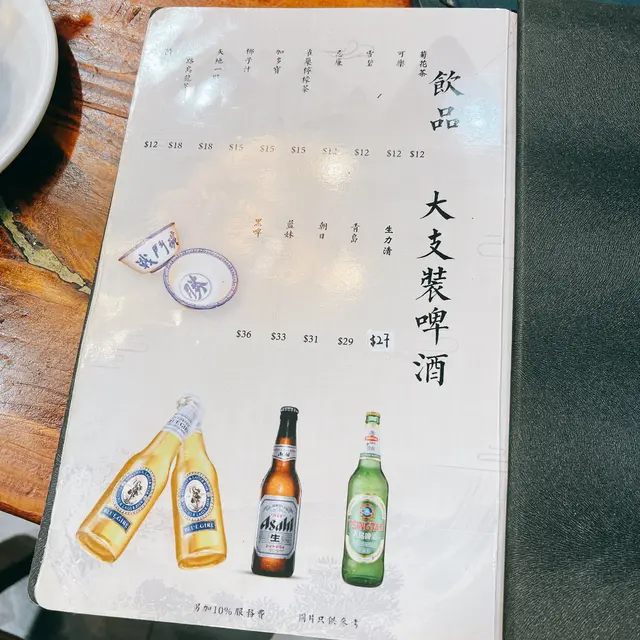 飲品
菊花茶
$12
可樂
$12
雪碧
$12
忌廉
$12
檸檬茶
$15
加多寶
$15
椰子汁
$15
天地一
$18
$18
$12
大支裝啤酒
生力清
$27
青島
$29
朝日
$31
藍妹
$33
黑啤
$36
BLUE GIRL
BLUE GIRL
Asahi
生
TSINGTAO
另加10%服務費
圖片只供參考